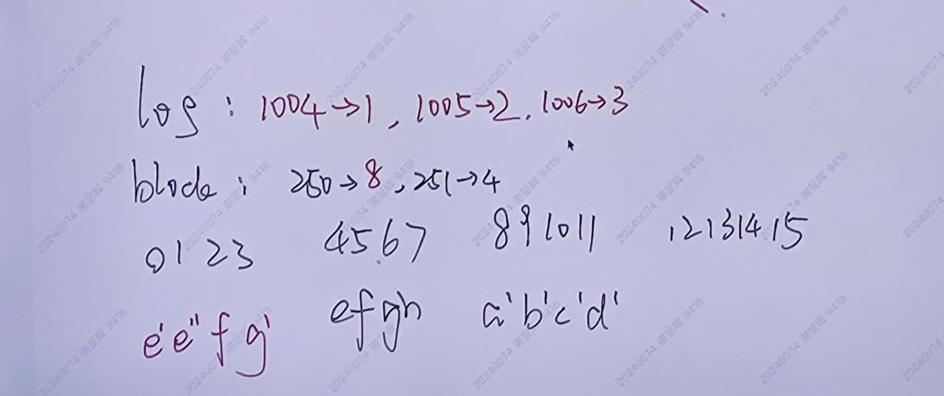 log : 1004→1, 1005→2, 1006→3
block : 250→8, 251→4
0 1 2 3 4 5 6 7 8 9 10 11 12 13 14 15
e' e'' f g' e f g h a' b' c' d'